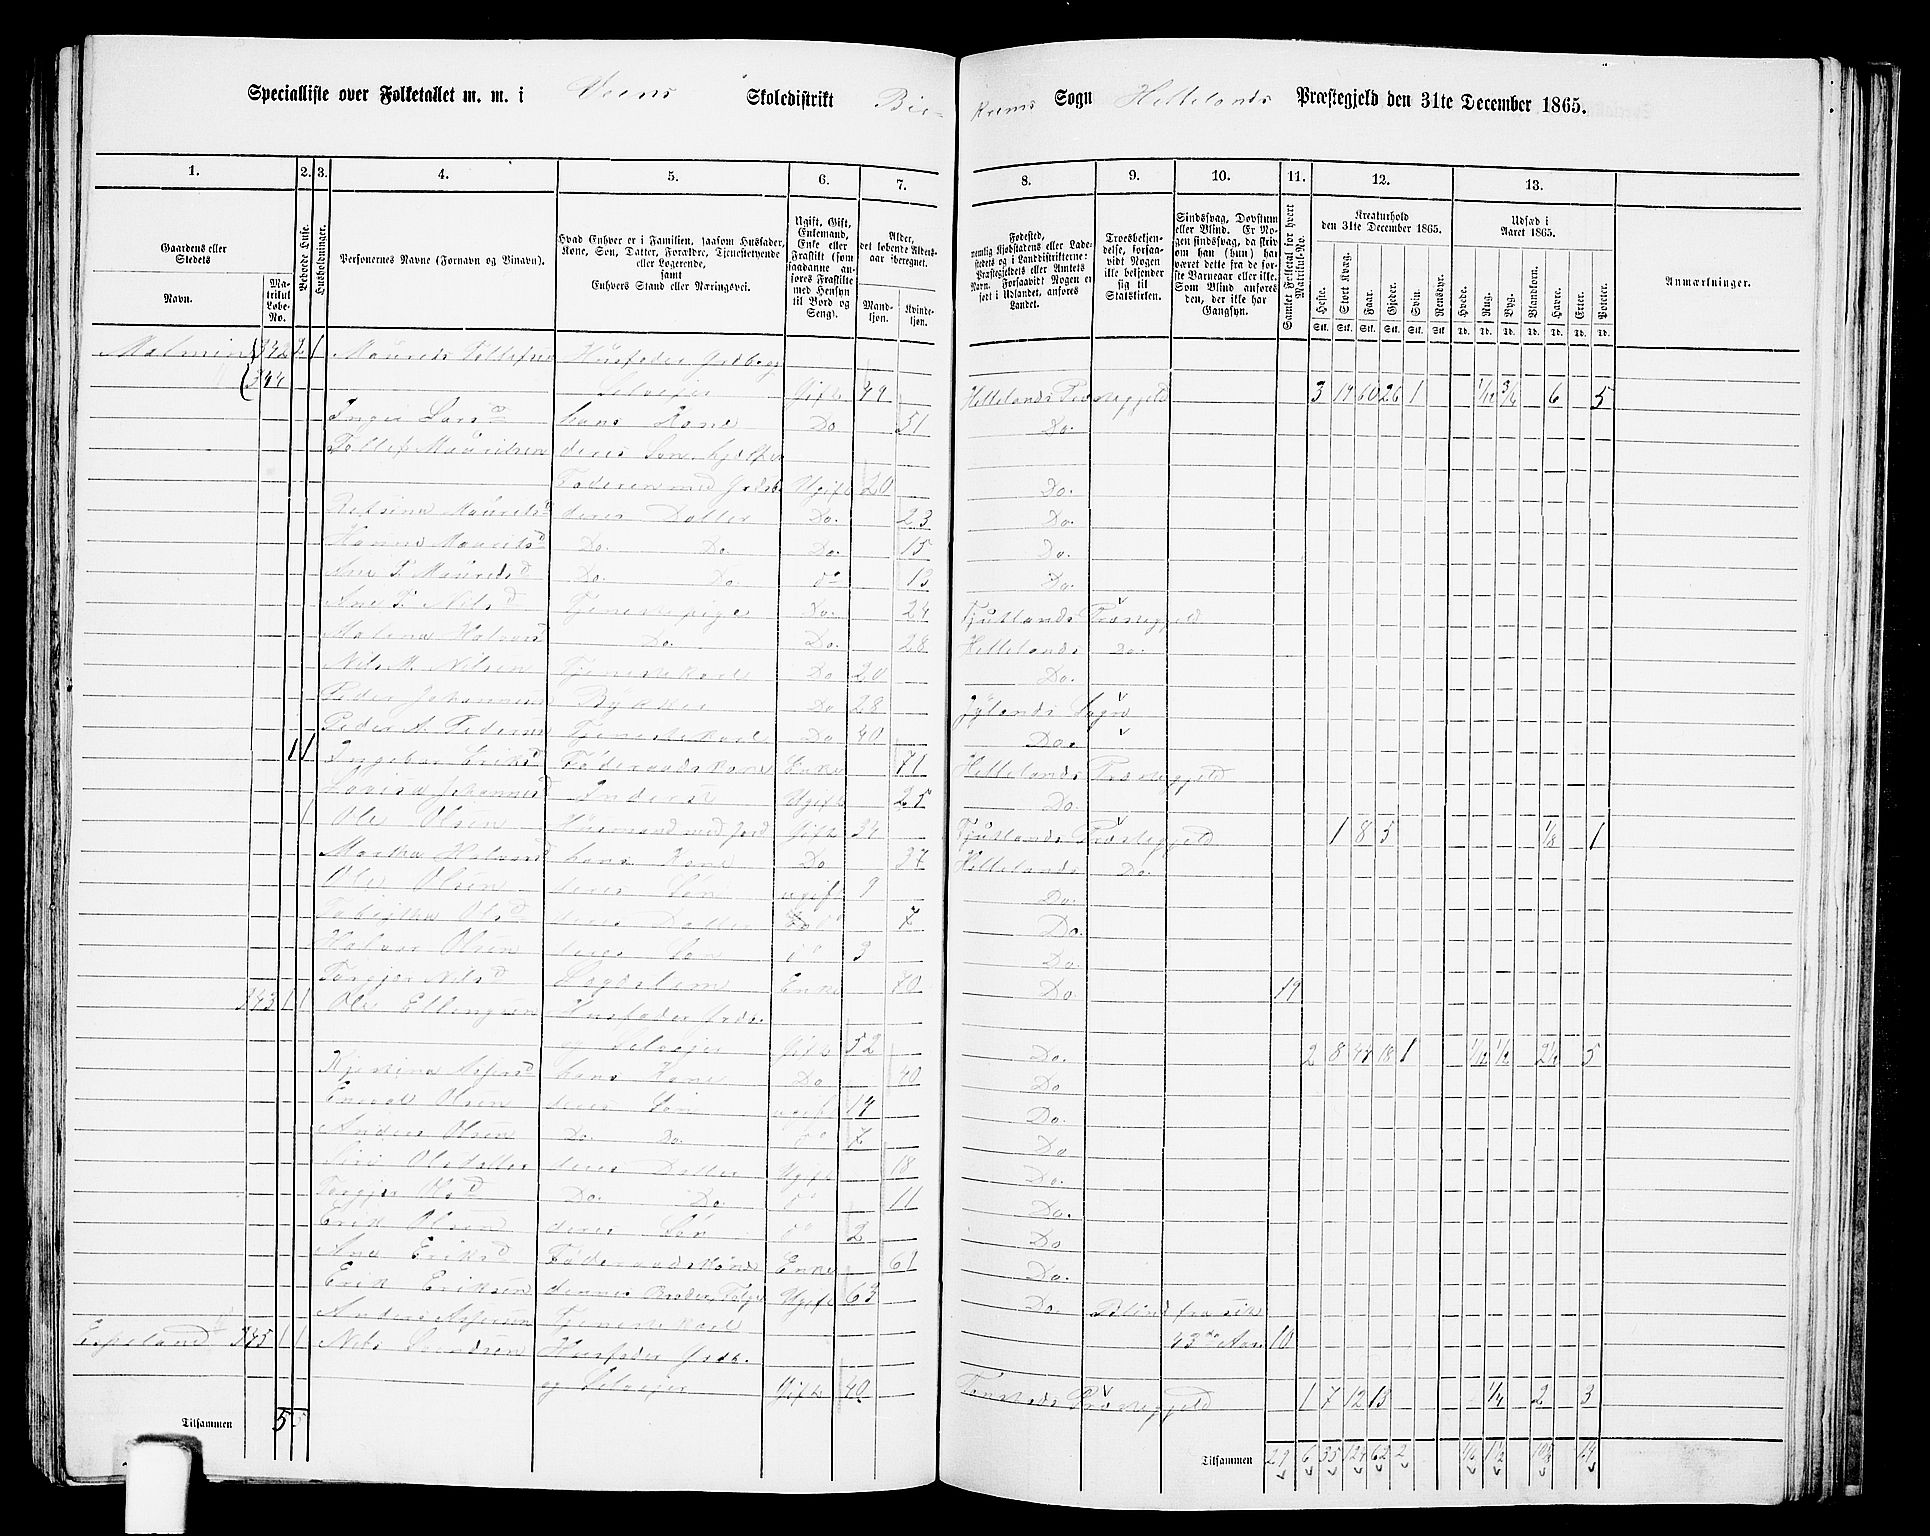 Specialliste over Folketallet m. m. i Veens Skoledistrikt Bie-
krems Sogn Hellelands Præstegjeld den 31te December 1865.
1. 2. 3. 4. 5. 6. 7. 8. 9. 10. 11. 12. 13.
Gaardens eller Stedets
Navn.
Matrikul Løbe-No.
Beboede Huse.
Husholdninger.
Personernes Navne (Fornavn og Tilnavn).
Hvad Enhver er i Familien, saasom Husfader, Kone, Søn, Datter, Forældre, Tjenestetyende eller Logerende,
samt
Enhvers Stand eller Næringsvei.
Ugift, Gift, Enkemand, Enke eller Fraskilt (som saadanne anføres Fraskilte med Hensyn til Bord og Seng).
Alder, det løbende Alders-aar iberegnet.
Mand-kjøn.
Kvinde-kjøn.
Fødested,
nemlig Kjøbstadens eller Ladestedets og i Landdistrikterne: Præstegjeldets eller Amtets Navn. Forsaavidt Nogen er født i Udlandet, anføres Landet.
Troesbekjendelse, forsaavidt Nogen ikke bekjender sig til Statskirken.
Sindssvag, Døvstum eller Blind. Er Nogen sindssvag, da skriv om han (hun) har været dette fra de første Barneaar eller ikke. Som Blind anføres den, der ikke har Gangsyn.
Samlet Folketal for hvert Matrikul-No.
Kreaturhold
den 31te December 1865.
Heste. Stort Kvæg. Faar. Gjeder. Svin. Rensdyr.
Stk. Stk. Stk. Stk. Stk. Stk.
Udsæd i
Aaret 1865.
Hvede. Rug. Byg. Blandkorn. Havre. Erter. Poteter.
Td. Td. Td. Td. Td. Td. Td.
Anmærkninger.
Malmin 342 2 1 Maurits Tollefsen Husfader Grdb. og
344 Selveier Gift 49 Hellelands Præstegjeld 3 19 60 26 1 1/12 3/4 6 5
Inger Larsd hans Kone Do 51 Do.
Tollef Mauritsen deres Søn, hjelper
Faderen med Grdsb. Ugift 20 Do.
Mauritsd deres Datter Do. 23 Do.
Hanne Mauritsd Do. Do. Do. 15 Do.
Ane T. Mauritsd Do. Do. do 13 Do.
Ane T. Nilsd Tjenestepige Do. 24 Fjotlands Præstegjeld
Malena Halvorsd Do. Do. 28 Hellelands Do.
Nils M. Nilsen Tjenestekarl Do 20 Do.
Peder Johannesen Bykker Do 28 Jylands Sogn
Peder A. Pedersen Tjenestekarl Do 40 Do.
1 1 Ingebor Eriksd Føderaadskone Enke 71 Hellelands Præstegjeld
Lovisa Johannesd Inderst Ugift 25 Do.
1 Ole Olsen Husmand med Jord Gift 34 Fjotlands Præstegjeld 1 8 5 1/8 1
Martha Halvorsd hans Kone Do 27 Hellelands Do.
Ole Olsen deres Søn ugift 9 Do.
Tobiska Olsd deres Datter do 7 Do.
Halvor Olsen deres Søn do 3 Do.
Torgjer Nilsd Lægdslem Enke 70 Do 19
343 1 1 Ole Ellingsen Husfader Grdb.
og Selveier Gift 52 Do. 2 8 44 18 1 1/12 1/2 2 1/2 5
Kjerstina Asersd hans Kone Do 40 Do
Enevald Olsen deres Søn ugift 14 Do.
Anders Olsen Do. Do. do 7 Do
Siri Olsdatter deres Datter Ugift 18 Do.
Torgjer Olsd Do. Do. do 11 Do.
Erik Olsen deres Søn do 2 Do
Ane Eriksd Føderaadskone Enke 61 Do.
Erik Eriksen dennes Broder, Følger Ugift 63 Do. Blind fra sit
Anders Asersen Tjenestekarl 43de Aar. 10
Espeland 345 1 1 Nils Svendsen Husfader Grdb.
og Selveier Gift 40 Tonstads Præstegjeld 1 7 12 13 1/4 2 3
Tilsammen 5 5
Tilsammen 29 6 35 124 62 2 1/6 1 1/2 10 5/8 14